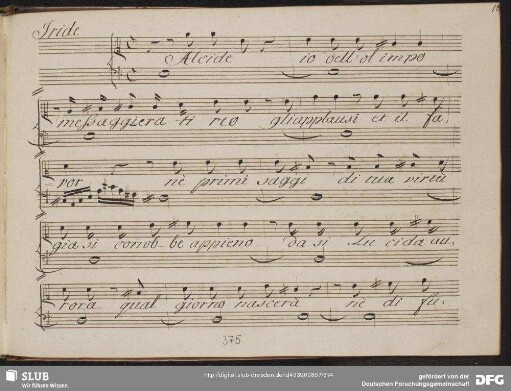 Iride
Alcide io dell' olimpo
messaggiera ti reo gli applausi et il fa,
vor nè primi saggi di tua virtù
gia si conob-be appieno da si Lucida au,
rora qual giorno nascerà ne di fu,
375
SLUB
Wir führen Wissen.
gefördert von der
Deutschen Forschungsgemeinschaft
DFG